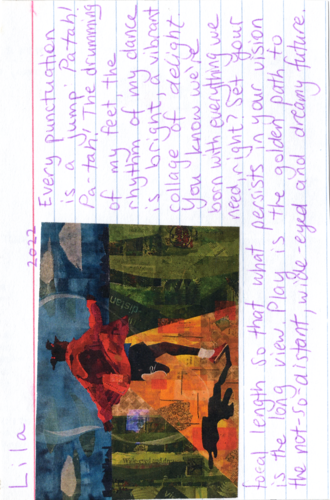 Lila
2022
Every punctuation
is a jump. Patah!
Pa-tah! The drumming
of my feet the
rhythm of my dance
is bright, a vibrant
collage of delight.
You know we're
born with everything we
need, right? Set your
focal length so that what persists in your vision
is the long view. Play is the golden path to
the not-so distant, wide-eyed and dreamy future.